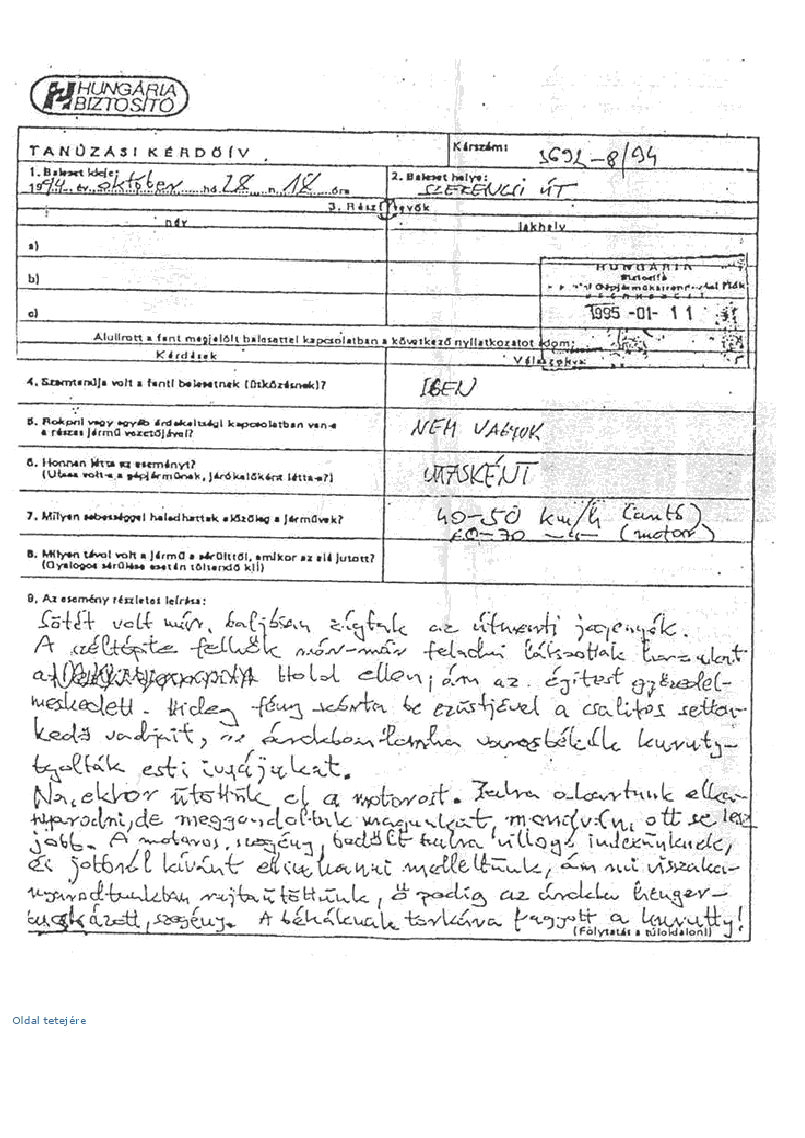 HUNGÁRIA
BIZTOSÍTÓ
TANÚZÁSI KÉRDŐÍV
Kárszám: 3692-8/94
1. Baleset ideje:
1994 év október hó 28 n. 18 óra
2. Baleset helye:
SZERENCSI ÚT
3. Résztvevők
név
lakhely
a)
b)
c)
HUNGÁRIA
Biztosító
1995 -01- 11
Alulírott a fent megjelölt balesettel kapcsolatban a következő nyilatkozatot adom:
Kérdések
Válaszok:
4. Szemtanúja volt a fenti balesetnek (ütközésnek)?
IGEN
5. Rokoni vagy egyéb érdekeltségi kapcsolatban van-e
a részes jármű vezetőjével?
NEM VAGYOK
6. Honnan látta az eseményt?
(Utasa volt-e a gépjárműnek, járókelőként látta-e?)
UTASKÉNT
7. Milyen sebességgel haladhattak előzőleg a járművek?
40-50 km/h (autó)
60-70 (motor)
8. Milyen távol volt a jármű a sérülttől, amikor az elé jutott?
(Gyalogos sérülése esetén töltendő ki!)
9. Az esemény részletes leírása:
Sötét volt már, baljósan zúgtak az útmenti jegenyék.
A széltépte felhők már-már feladni látszottak harcukat
a Hold ellen, ám az égitest győzedel-
meskedett. Hideg fény szórta be ezüstjével a csalitos setten-
kedő vadjait, s az árokban lomha varasbékák kuruty-
tyolták esti imájukat.
Na, ekkor ütöttük el a motorost. Balra akartunk elka-
nyarodni, de meggondoltuk magunkat, mondván, ott se lesz
jobb. A motoros, szegény, bedőlt balra villogó indexünknek,
és jobbról kívánt elsuhanni mellettünk, ám mi visszaka-
nyarodtunkban rajtaütöttünk, ő pedig az árokba henger-
buckázott, szegény. A békáknak torkára fagyott a kurutty!
(Folytatás a túloldalon!)
Oldal tetejére